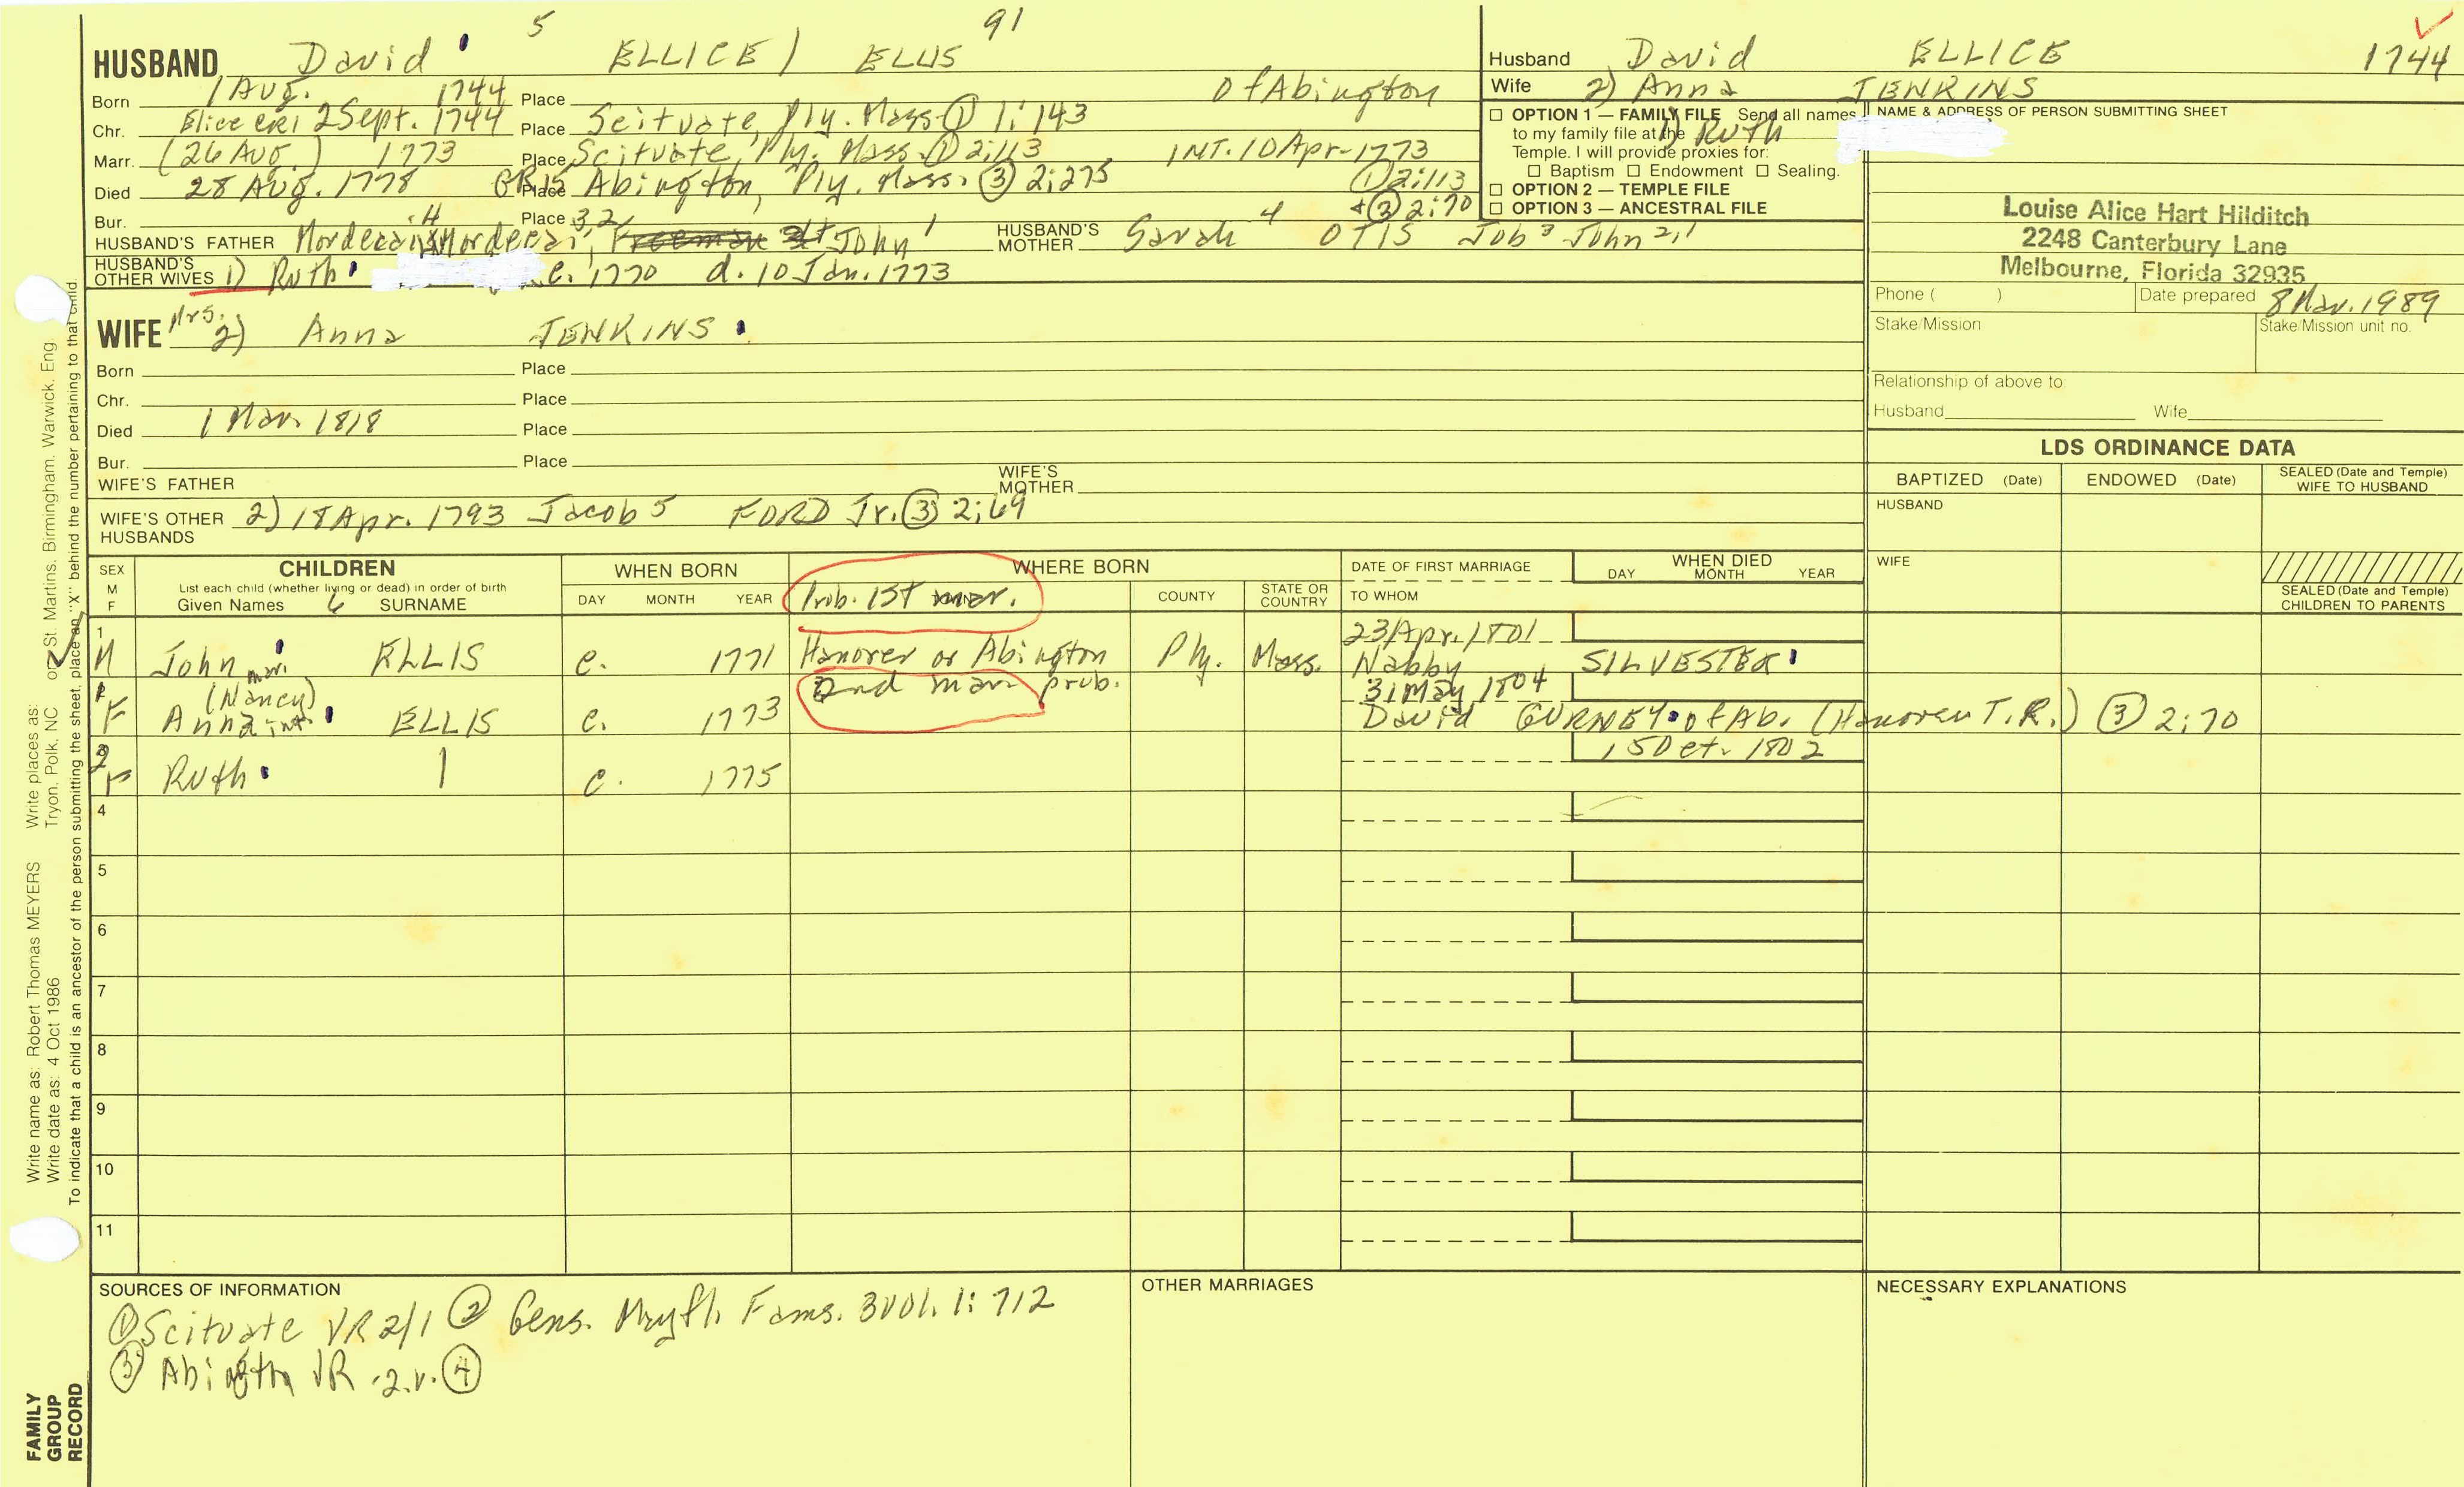 5 91
HUSBAND David ELLICE / ELLIS
Born 1 Aug. 1744 Place Of Abington
Chr. Elice CR1 2 Sept. 1744 Place Scituate, Ply. Mass ① 1:143
Marr. (26 Aug.) 1773 Place Scituate, Ply. Mass. ① 2:113 INT. 10 Apr-1773
Died 28 Aug. 1778 GR15 Place Abington, Ply. Mass. ③ 2:275 ① 2:113
Bur. Place + ③ 2:70
HUSBAND'S FATHER Mordecai 4 Mordecai 3,2 John 1 HUSBAND'S MOTHER Sarah 4 OTIS Job 3 John 2,1
HUSBAND'S OTHER WIVES 1) Ruth c. 1770 d. 10 Jan. 1773
WIFE Mrs. 2) Anna JENKINS
Born Place
Chr. Place
Died 1 Mar. 1818 Place
Bur. Place
WIFE'S FATHER WIFE'S MOTHER
WIFE'S OTHER HUSBANDS 2) 18 Apr. 1793 Jacob 5 FORD Jr. ③ 2:69
Husband David ELLICE 1744
Wife 2) Anna JENKINS
1) Ruth
OPTION 1 — FAMILY FILE Send all names
to my family file at the
Temple. I will provide proxies for:
Baptism Endowment Sealing.
OPTION 2 — TEMPLE FILE
OPTION 3 — ANCESTRAL FILE
NAME & ADDRESS OF PERSON SUBMITTING SHEET
Louise Alice Hart Hilditch
2248 Canterbury Lane
Melbourne, Florida 32935
Phone ( ) Date prepared 8 Mar. 1989
Stake/Mission Stake/Mission unit no.
Relationship of above to:
Husband Wife
LDS ORDINANCE DATA
BAPTIZED (Date) ENDOWED (Date) SEALED (Date and Temple) WIFE TO HUSBAND
HUSBAND
WIFE
SEALED (Date and Temple) CHILDREN TO PARENTS
SEX M F
CHILDREN
List each child (whether living or dead) in order of birth
Given Names 6 SURNAME
WHEN BORN
DAY MONTH YEAR
WHERE BORN
Prob. 1st mar.
COUNTY STATE OR COUNTRY
DATE OF FIRST MARRIAGE
TO WHOM
WHEN DIED
DAY MONTH YEAR
1 M John ELLIS c. 1771 Hanover or Abington Ply. Mass. 23 Apr. 1801
Nabby SILVESTER
F mar. (Nancy) Anna int. ELLIS c. 1773 2nd mar prob. 31 May 1804
David GURNEY of Ab. (Hanover T.R.) ③ 2:70
F Ruth c. 1775 15 Oct. 1802
4
5
6
7
8
9
10
11
SOURCES OF INFORMATION
① Scituate VR 2/1 ② Gens. Mayfl. Fams. 3vol. 1:712
③ Abington VR 2.v. ④
OTHER MARRIAGES
NECESSARY EXPLANATIONS
Write name as: Robert Thomas MEYERS Write places as:
Write date as: 4 Oct 1986 Tryon, Polk, NC or St. Martins, Birmingham, Warwick, Eng.
To indicate that a child is an ancestor of the person submitting the sheet, place an "X" behind the number pertaining to that child.
FAMILY
GROUP
RECORD